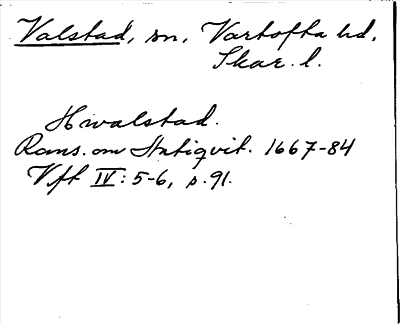 Valstad, sn, Vartofta hd,
Skar. l.
Hwalstad.
Rans. om Antiqvit. 1667-84
Vft IV: 5-6, s. 91.